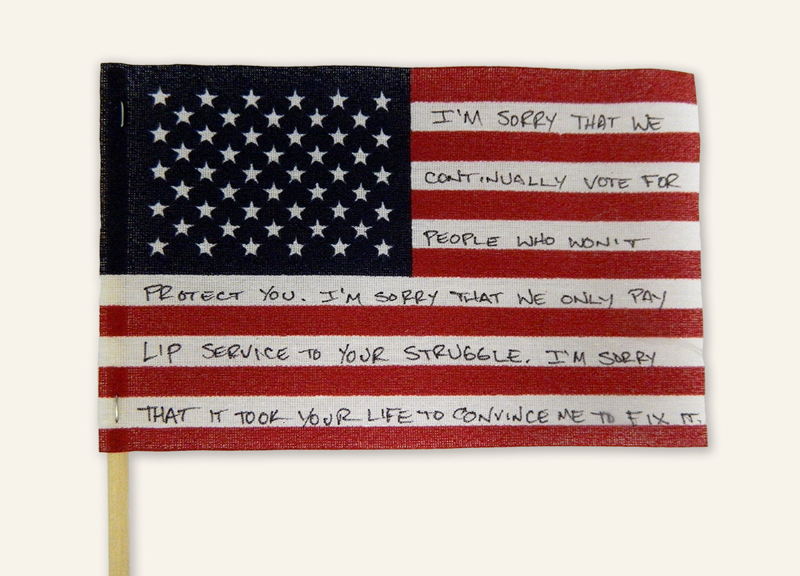 I'M SORRY THAT WE
CONTINUALLY VOTE FOR
PEOPLE WHO WON'T
PROTECT YOU. I'M SORRY THAT WE ONLY PAY
LIP SERVICE TO YOUR STRUGGLE. I'M SORRY
THAT IT TOOK YOUR LIFE TO CONVINCE ME TO FIX IT.